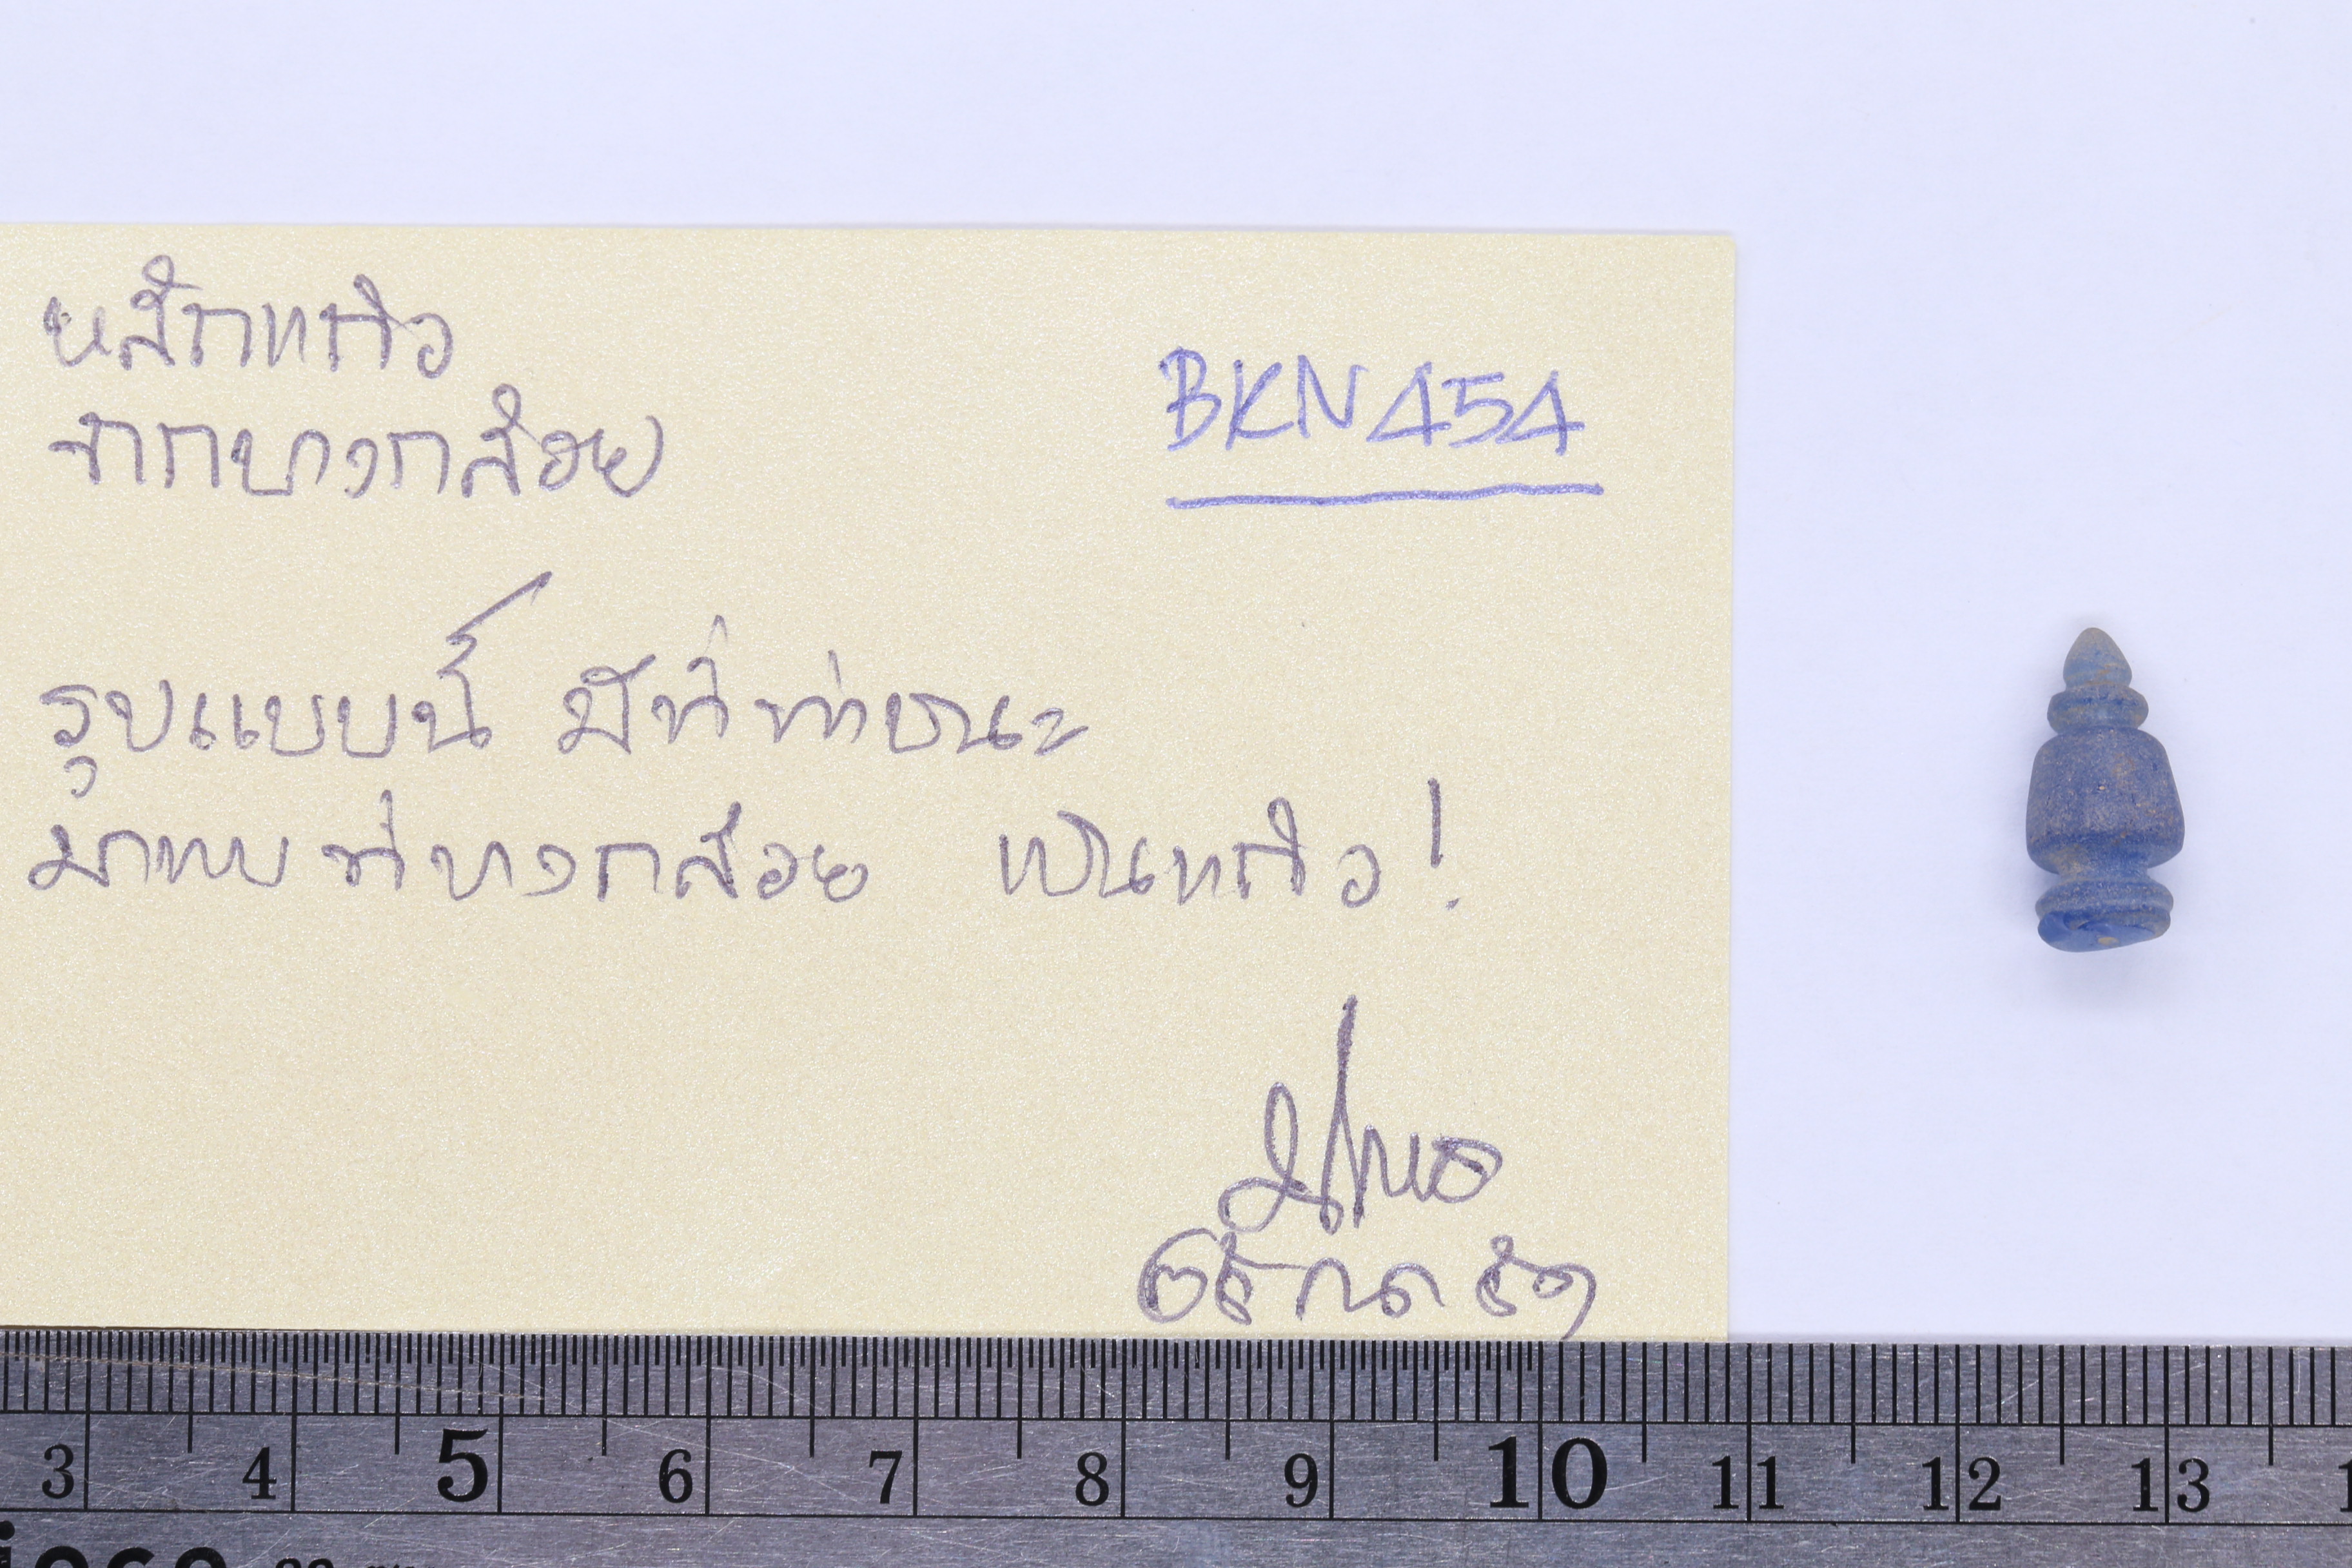 หลักแก้ว
จากบางกล้วย
BKN454
รูปแบบนี้ มีที่ท่าชนะ
มาพบที่บางกล้วย เป็นแก้ว!
3 4 5 6 7 8 9 10 11 12 13